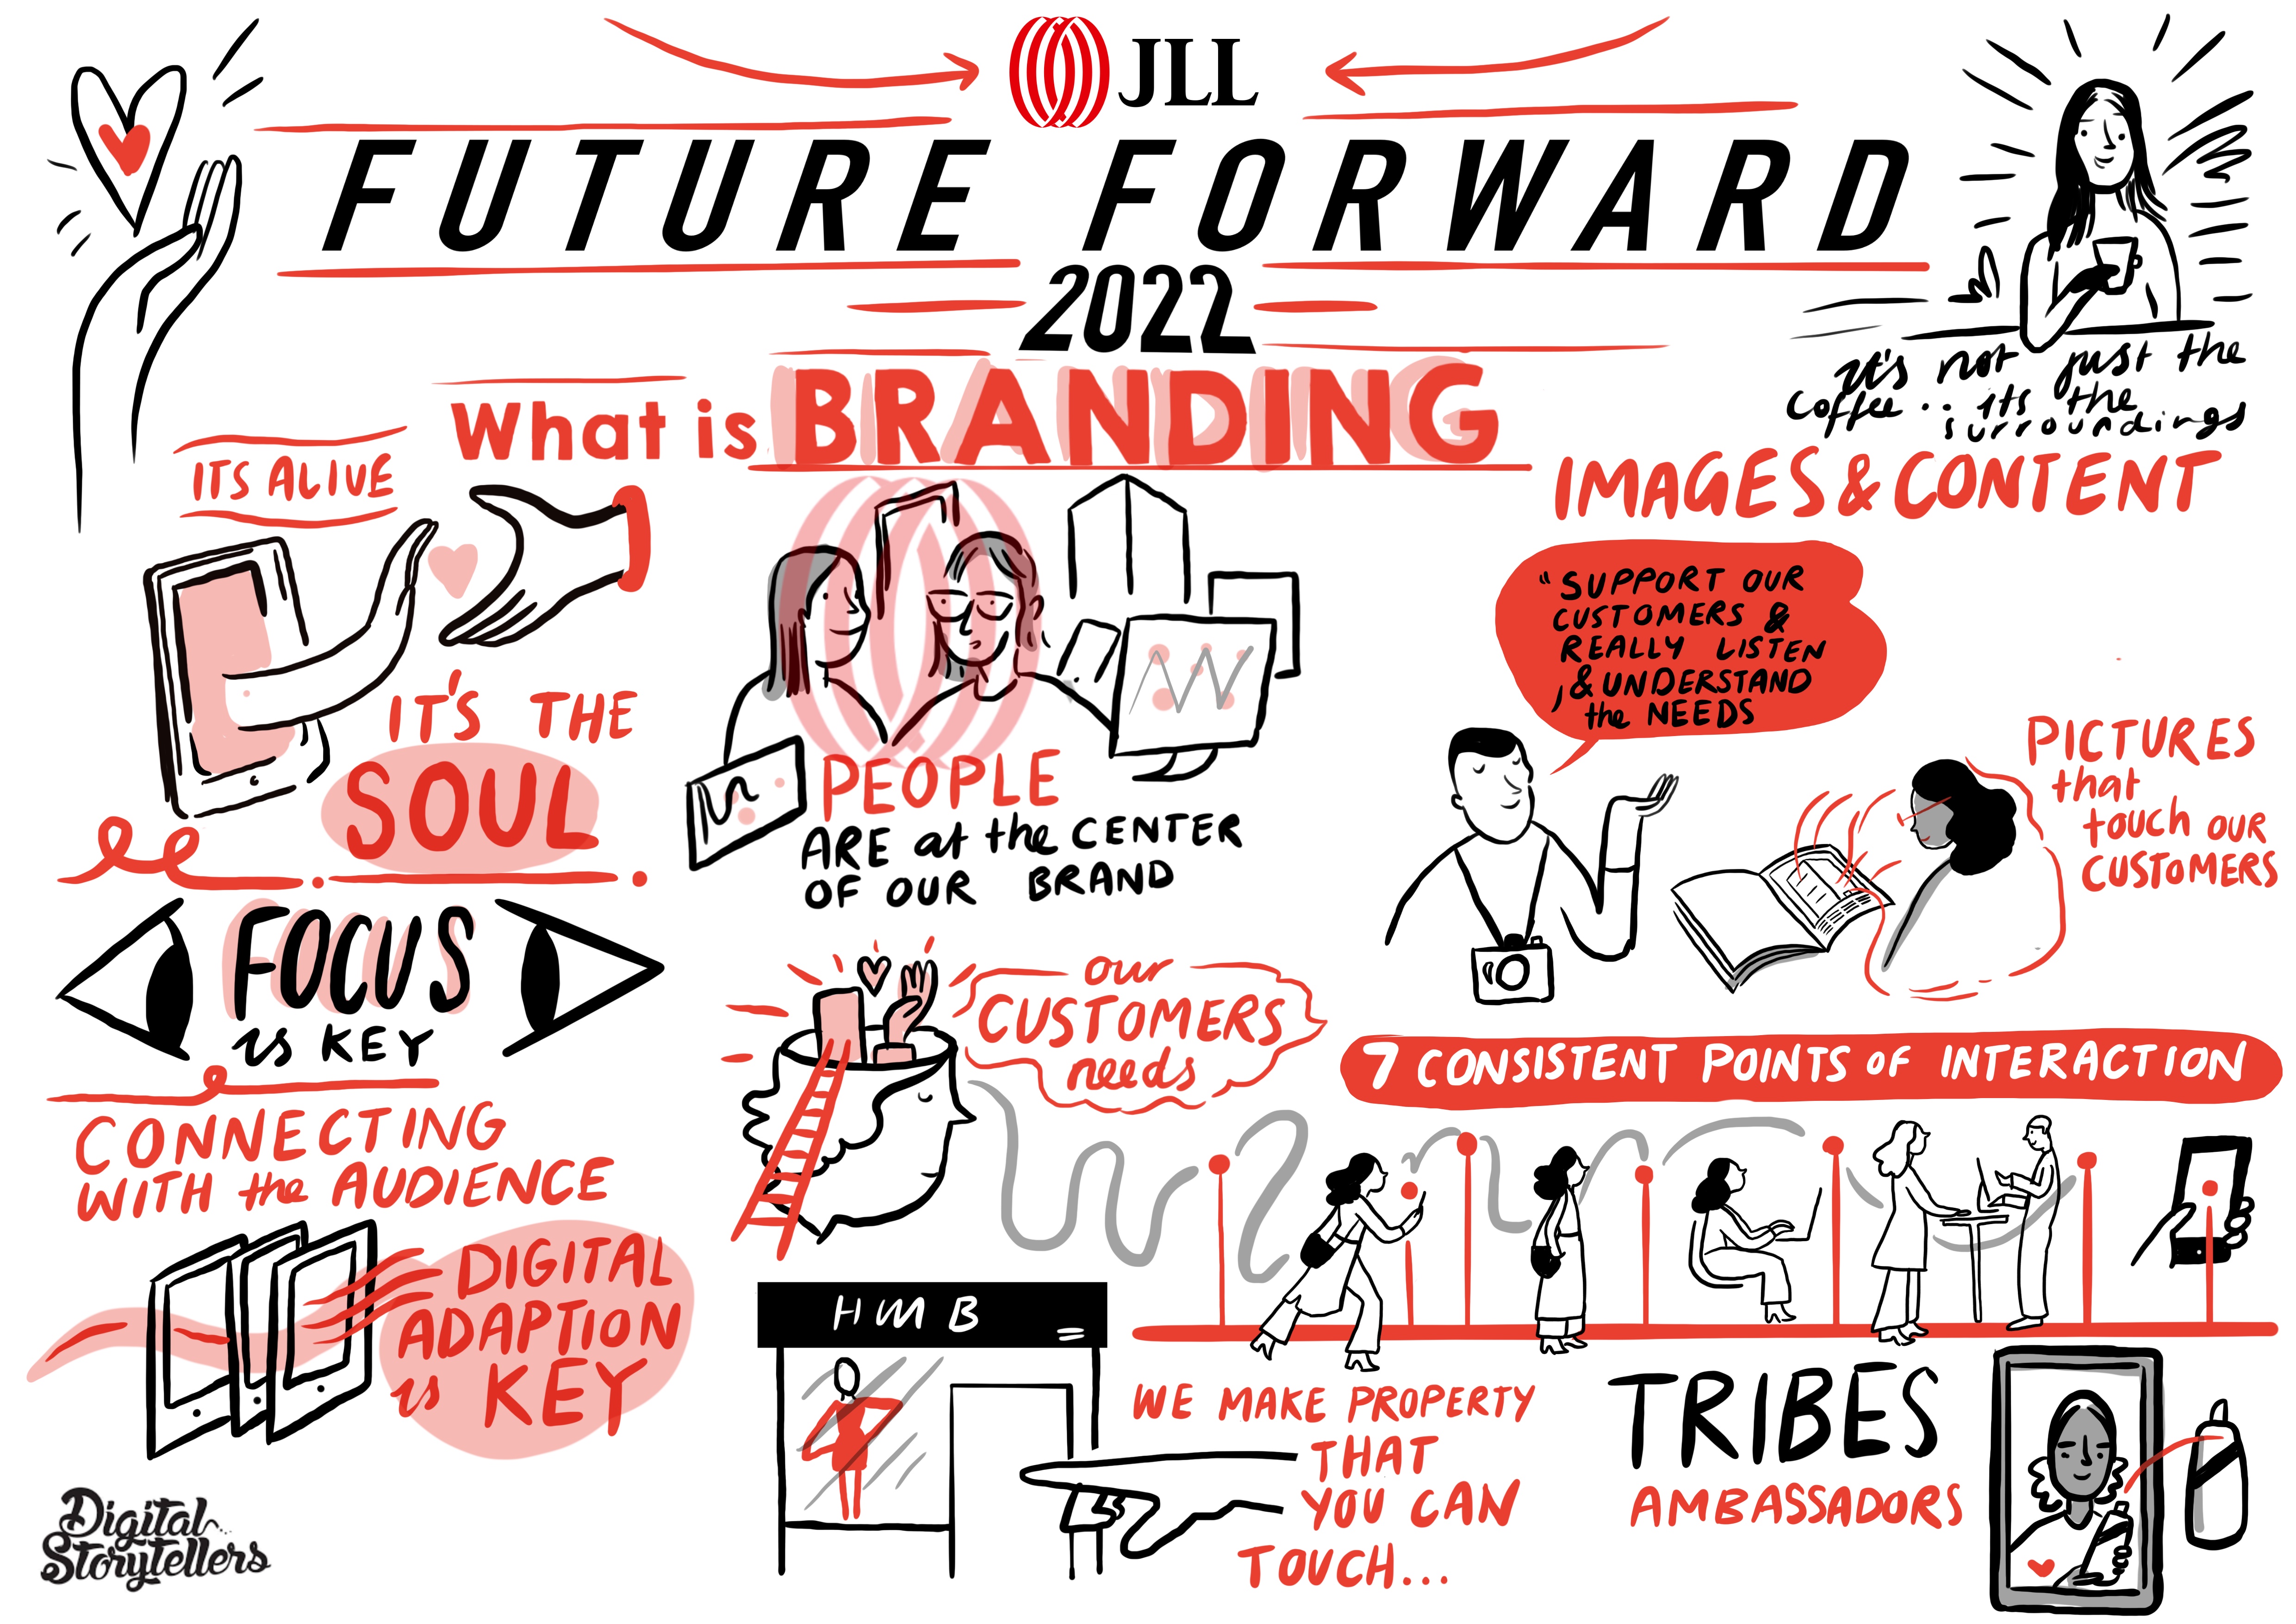 JLL
FUTURE FORWARD
2022
What is BRANDING
it's not just the
coffee.. its the
surroundings
ITS ALIVE
IT'S THE
SOUL
FOCUS
is KEY
CONNECTING
WITH the AUDIENCE
DIGITAL
ADAPTION
is KEY
Digital
Storytellers
PEOPLE
ARE at the CENTER
OF OUR BRAND
our
CUSTOMERS
needs
H M B
WE MAKE PROPERTY
THAT
YOU CAN
TOUCH...
IMAGES & CONTENT
"SUPPORT OUR
CUSTOMERS &
REALLY LISTEN
, & UNDERSTAND
the NEEDS
PICTURES
that
touch OUR
CUSTOMERS
7 CONSISTENT POINTS OF INTERACTION
TRIBES
AMBASSADORS